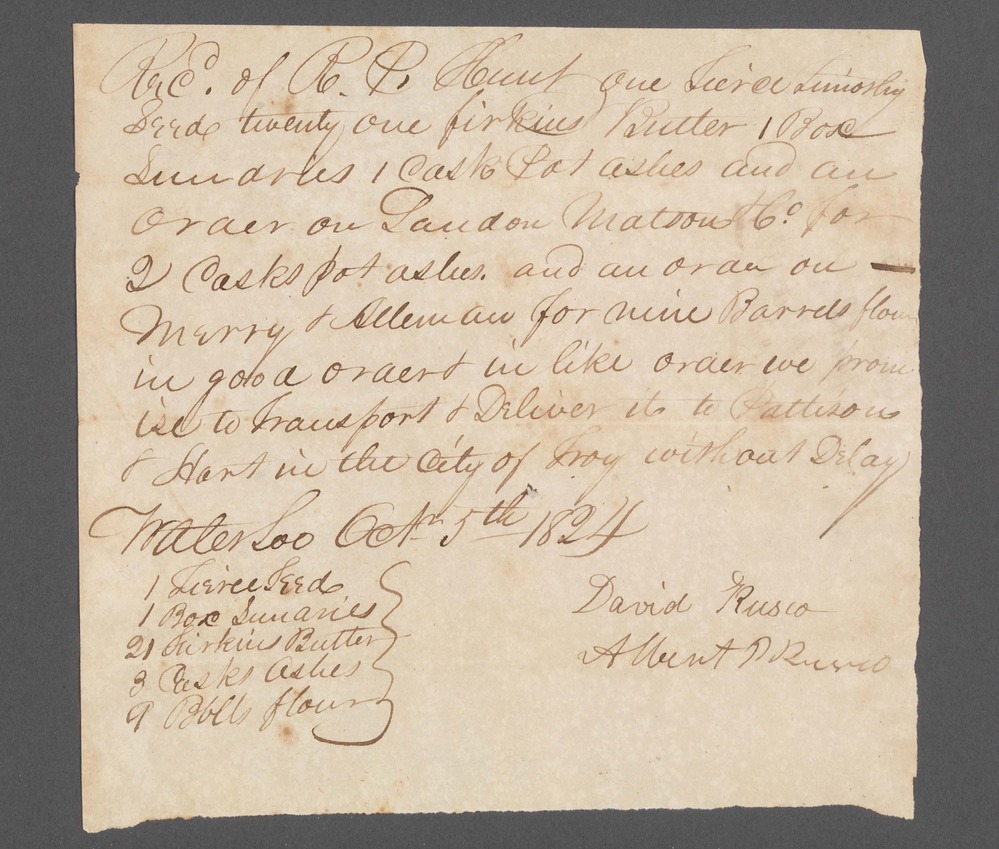 Recd. of R. P. Hunt one Tierce Timothy
Seed twenty one firkins Butter 1 Box
Sundries 1 Cask Pot ashes and an
order on Landon Matson & Co for
2 Casks Pot ashes. and an order on —
Merry & Alleman for nine Barrels flour
in good order & in like order we prom
ise to Transport & Deliver it to Pattison
& Hart in the City of Troy without Delay
Waterloo Octr 5th 1824
1 Tierce Seed
1 Box Sundries
21 Firkins Butter
3 Casks Ashes
9 Bblls flour
David Rusco
Albert P Rusco